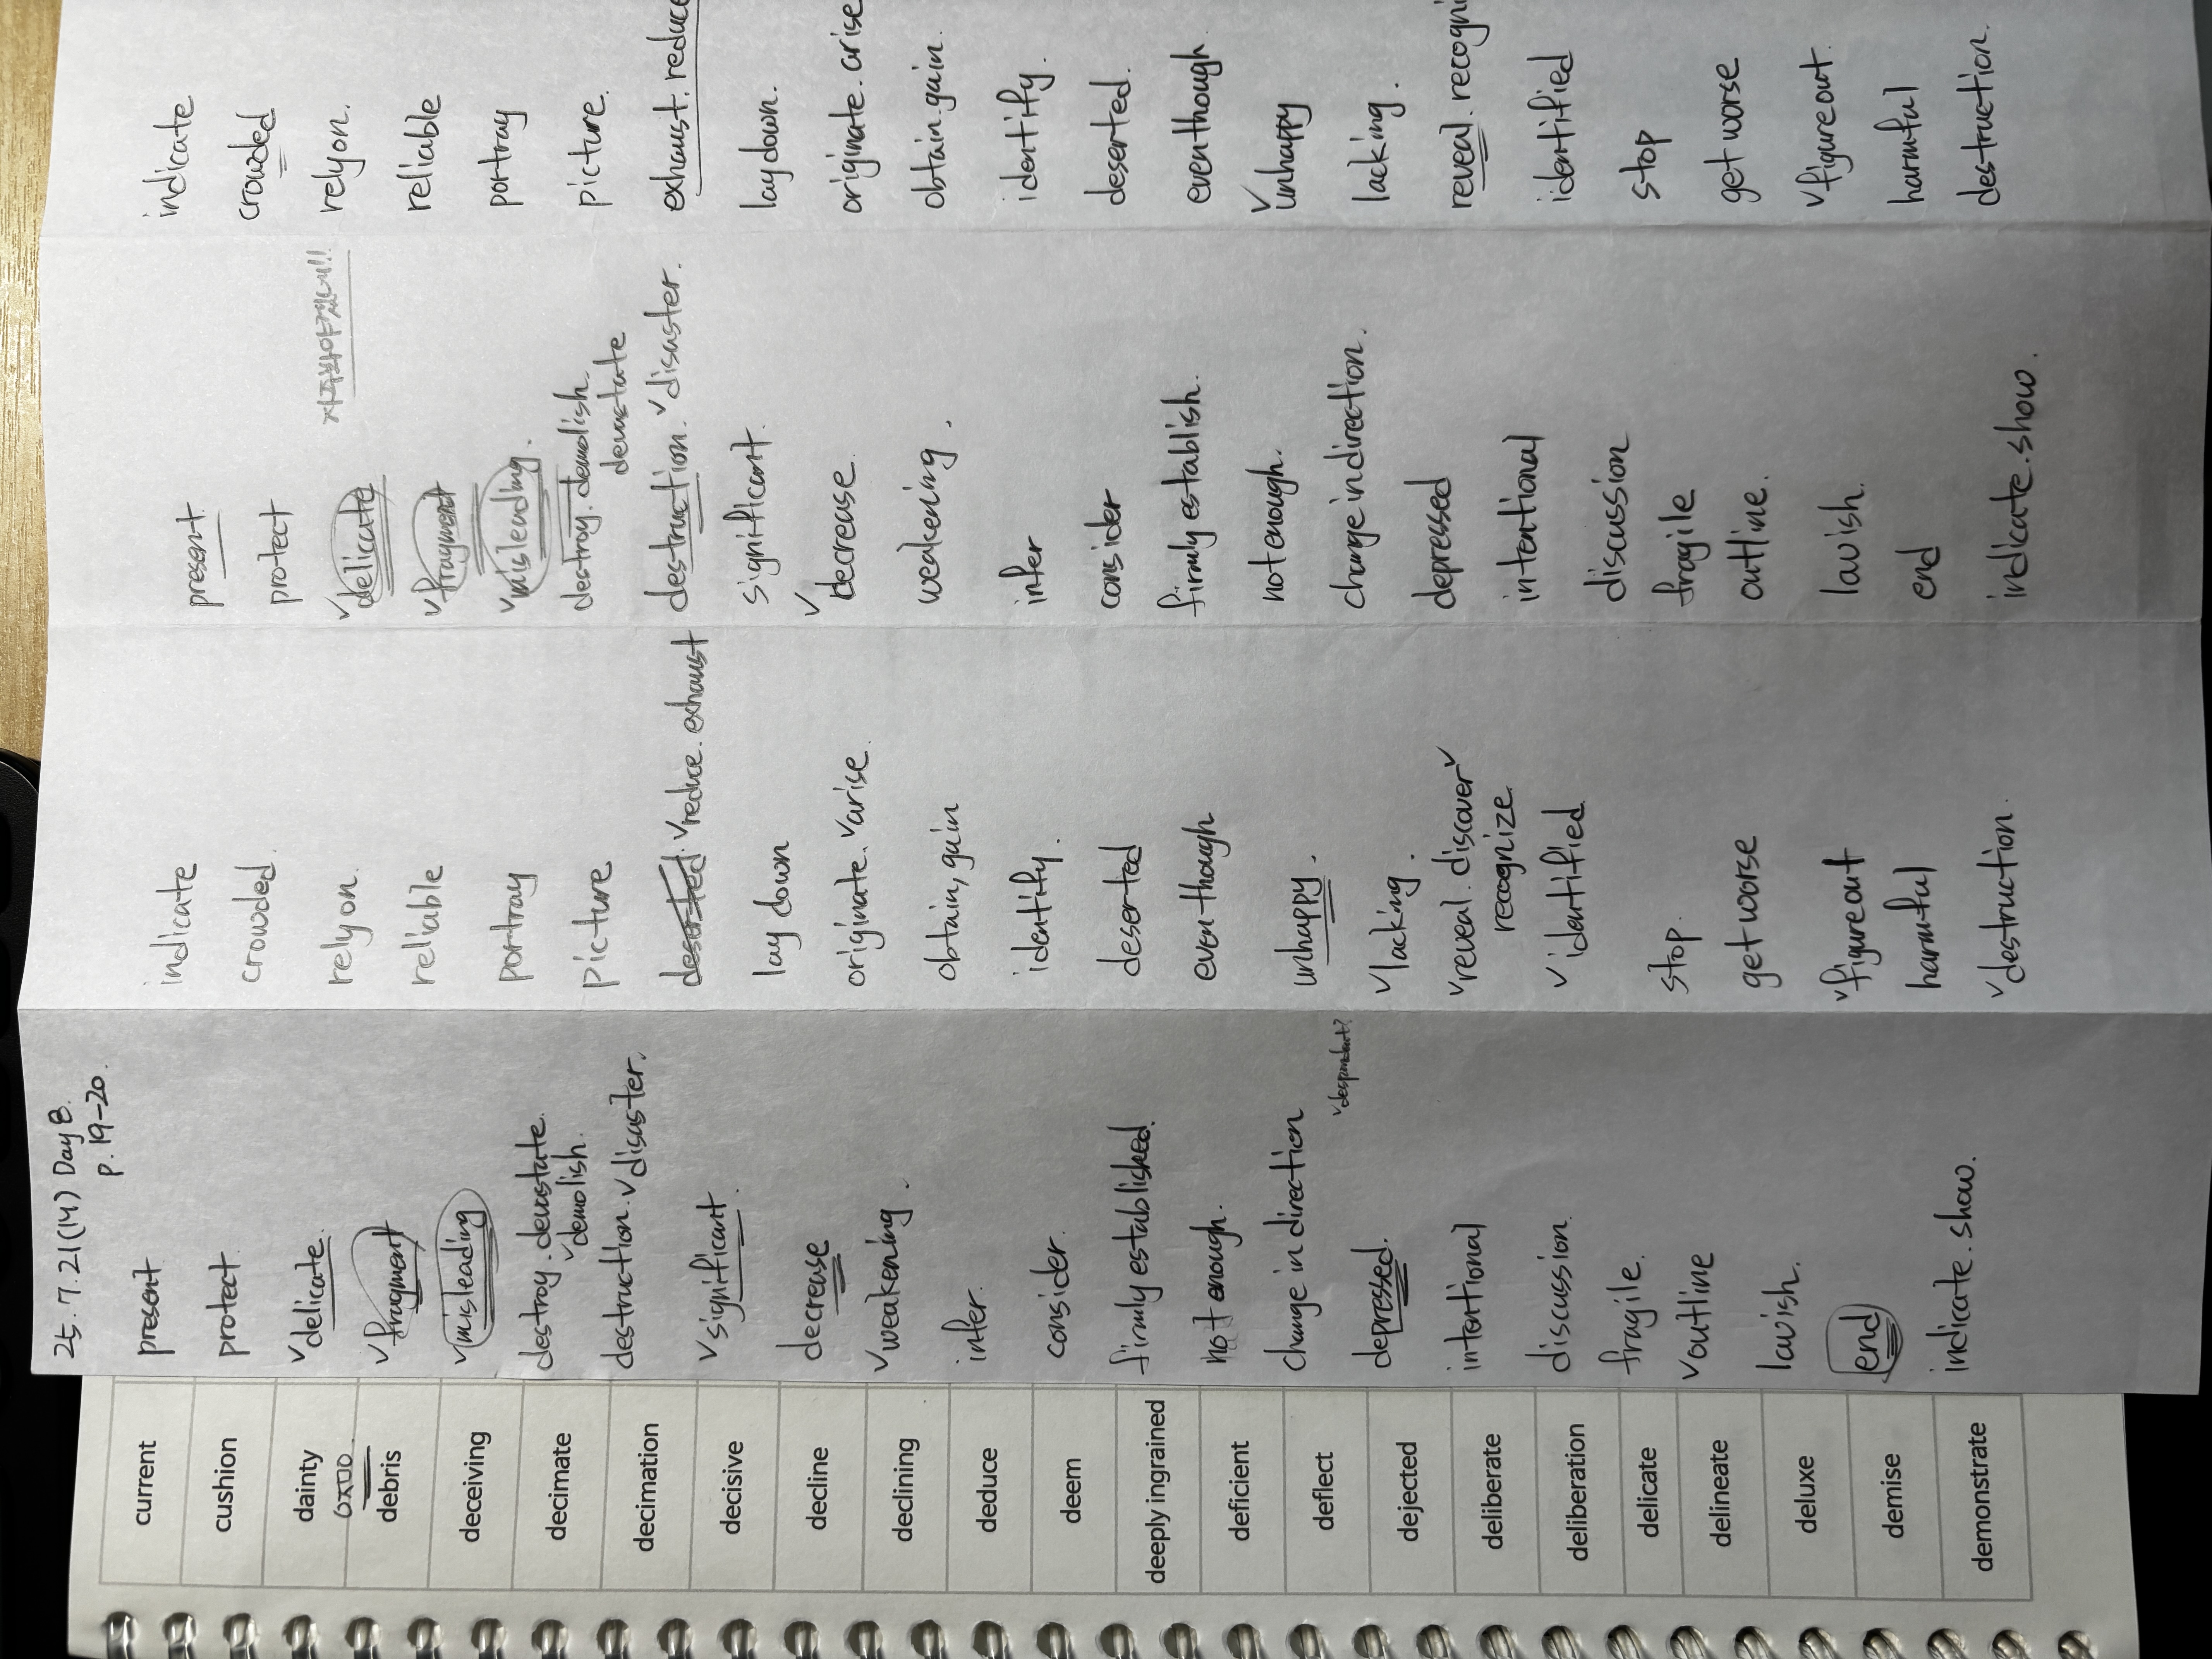 25. 7. 21 (14) Day 8.
p. 19-20.
current
cushion
dainty
debris
deceiving
decimate
decimation
decisive
decline
declining
deduce
deem
deeply ingrained
deficient
deflect
dejected
deliberate
deliberation
delicate
delineate
deluxe
demise
demonstrate
present
protect
✓delicate.
✓fragment
✓misleading
destroy. devastate.
✓demolish.
destruction. ✓disaster.
✓significant.
decrease
✓weakening.
infer.
consider.
firmly established.
not enough.
change in direction
✓despondent?
depressed.
intentional
discussion.
fragile.
✓outline
lavish.
end
indicate. show.
indicate
crowded.
rely on.
reliable
portray
picture
deserted. ✓reduce. exhaust
lay down
originate. ✓arise.
obtain, gain
identify.
deserted
even though
unhappy.
✓lacking.
✓reveal. discover✓
recognize.
✓identified
stop.
get worse
✓figure out
harmful
✓destruction.
자주봐야겠네!!
present.
protect
✓delicate
✓fragment
✓misleading.
destroy. demolish.
devastate
destruction. ✓disaster.
significant.
✓decrease.
weakening.
infer
consider
firmly establish.
not enough.
change in direction.
depressed
intentional
discussion
fragile
outline.
lavish.
end
indicate. show.
indicate
crowded
rely on.
reliable
portray
picture.
exhaust. reduce
lay down.
originate. arise
obtain. gain.
identify.
deserted.
even though
✓unhappy
lacking.
reveal. recogni
identified
stop
get worse
✓figure out.
harmful
destruction.